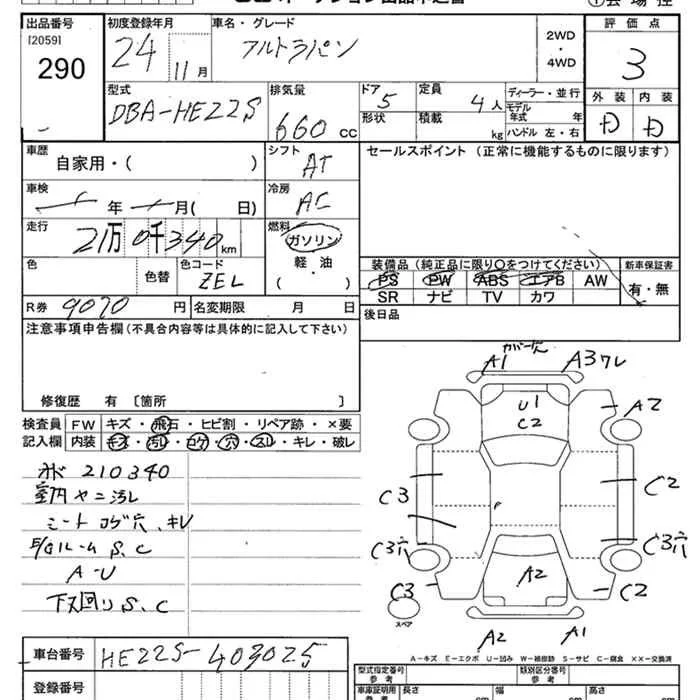 出品番号
[2059]
290
初度登録年月
24
11月
車名・グレード
アルトラパン
2WD
・
4WD
評価点
3
外装 内装
D D
型式
DBA-HE22S
排気量
660 cc
ドア
5
形状
定員
4人
積載
kg
ディーラー・並行
モデル年式 年
ハンドル 左・右
車歴
自家用・( )
シフト
AT
セールスポイント(正常に機能するものに限ります)
車検
年 月( 日)
冷房
AC
走行
21万0千340km
燃料
ガソリン
軽・油
( )
色
色替
色コード
ZEL
装備品(純正品に限り○をつけてください)
新車保証書
PS PW ABS エアB AW
有・無
SR ナビ TV カワ
R券 9070 円
名変期限 月 日
後日品
注意事項申告欄(不具合内容等は具体的に記入して下さい)
修復歴 有〔箇所 〕
検査員記入欄
FW キズ・飛石・ヒビ割・リペア跡・×要
内装 キズ・汚れ・コゲ・穴・スレ・キレ・破レ
210340
室内ヤニ汚レ
シートコゲ穴、キレ
S、C
A-U
下回りS、C
A1
A3ワレ
U1
C2
A2
C3
C2
C3穴
C3穴
C3
A2
C2
スペア
A2
A1
A-キズ E-エクボ U-凹み W-補修跡 S-サビ C-腐食 ××-交換済
車台番号
HE22S-403025
登録番号
型式指定番号
参考
類別区分番号
参考
車庫証明用
参考
長さ cm
幅 cm
高さ cm